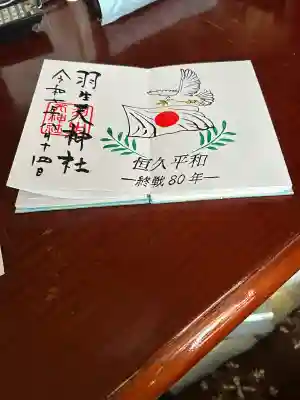 羽生天神社
令和七年八月十四日
恒久平和
―終戦80年―